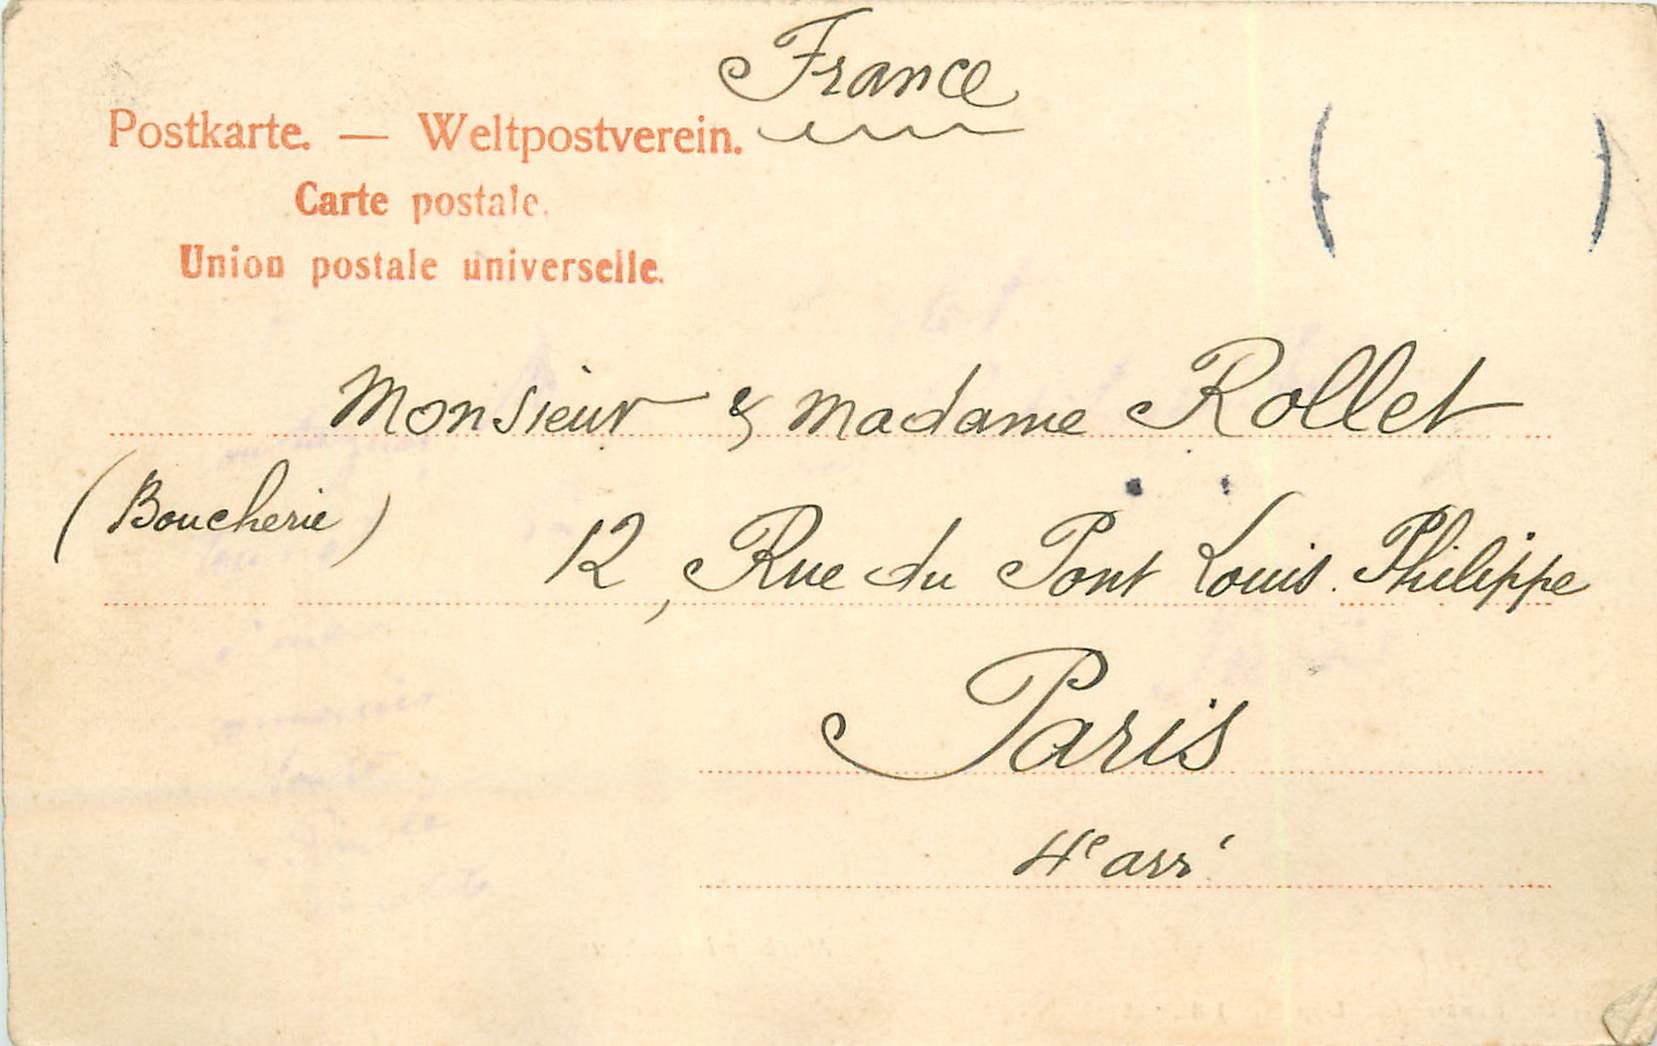 France
Postkarte. — Weltpostverein.
Carte postale.
Union postale universelle.
Monsieur & Madame Rollet
(Boucherie)
12, Rue du Pont Louis. Philippe
Paris
4e arrt